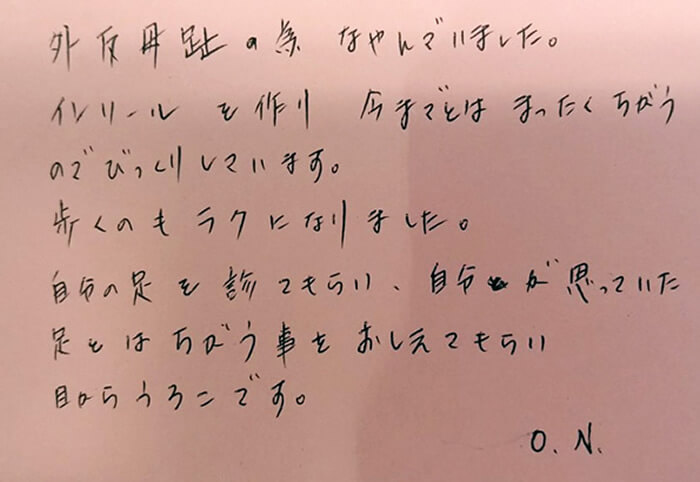 外反母趾の為 なやんでいました。
インソールを作り 今までとはまったくちがう
のでびっくりしています。
歩くのもラクになりました。
自分の足を診てもらい、自分が思っていた
足とはちがう事をおしえてもらい
目からうろこです。
O.N.